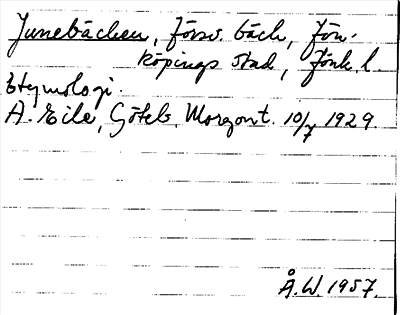 Junebäcken, försv. bäck, Jön-
köpings stad, Jönk. l.
Etymologi.
A. Eile, Göteb. Morgont. 10/7 1929
Å.W. 1957.